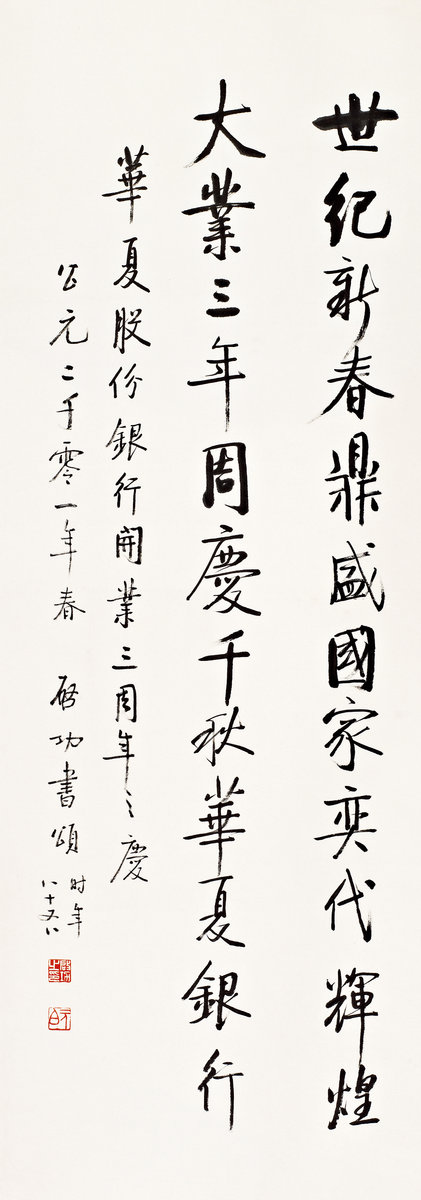 世紀新春鼎盛國家奕代輝煌
大業三年周慶千秋華夏銀行
華夏股份銀行開業三周年之慶
公元二千零一年春 啓功書頌
时年
八十又八